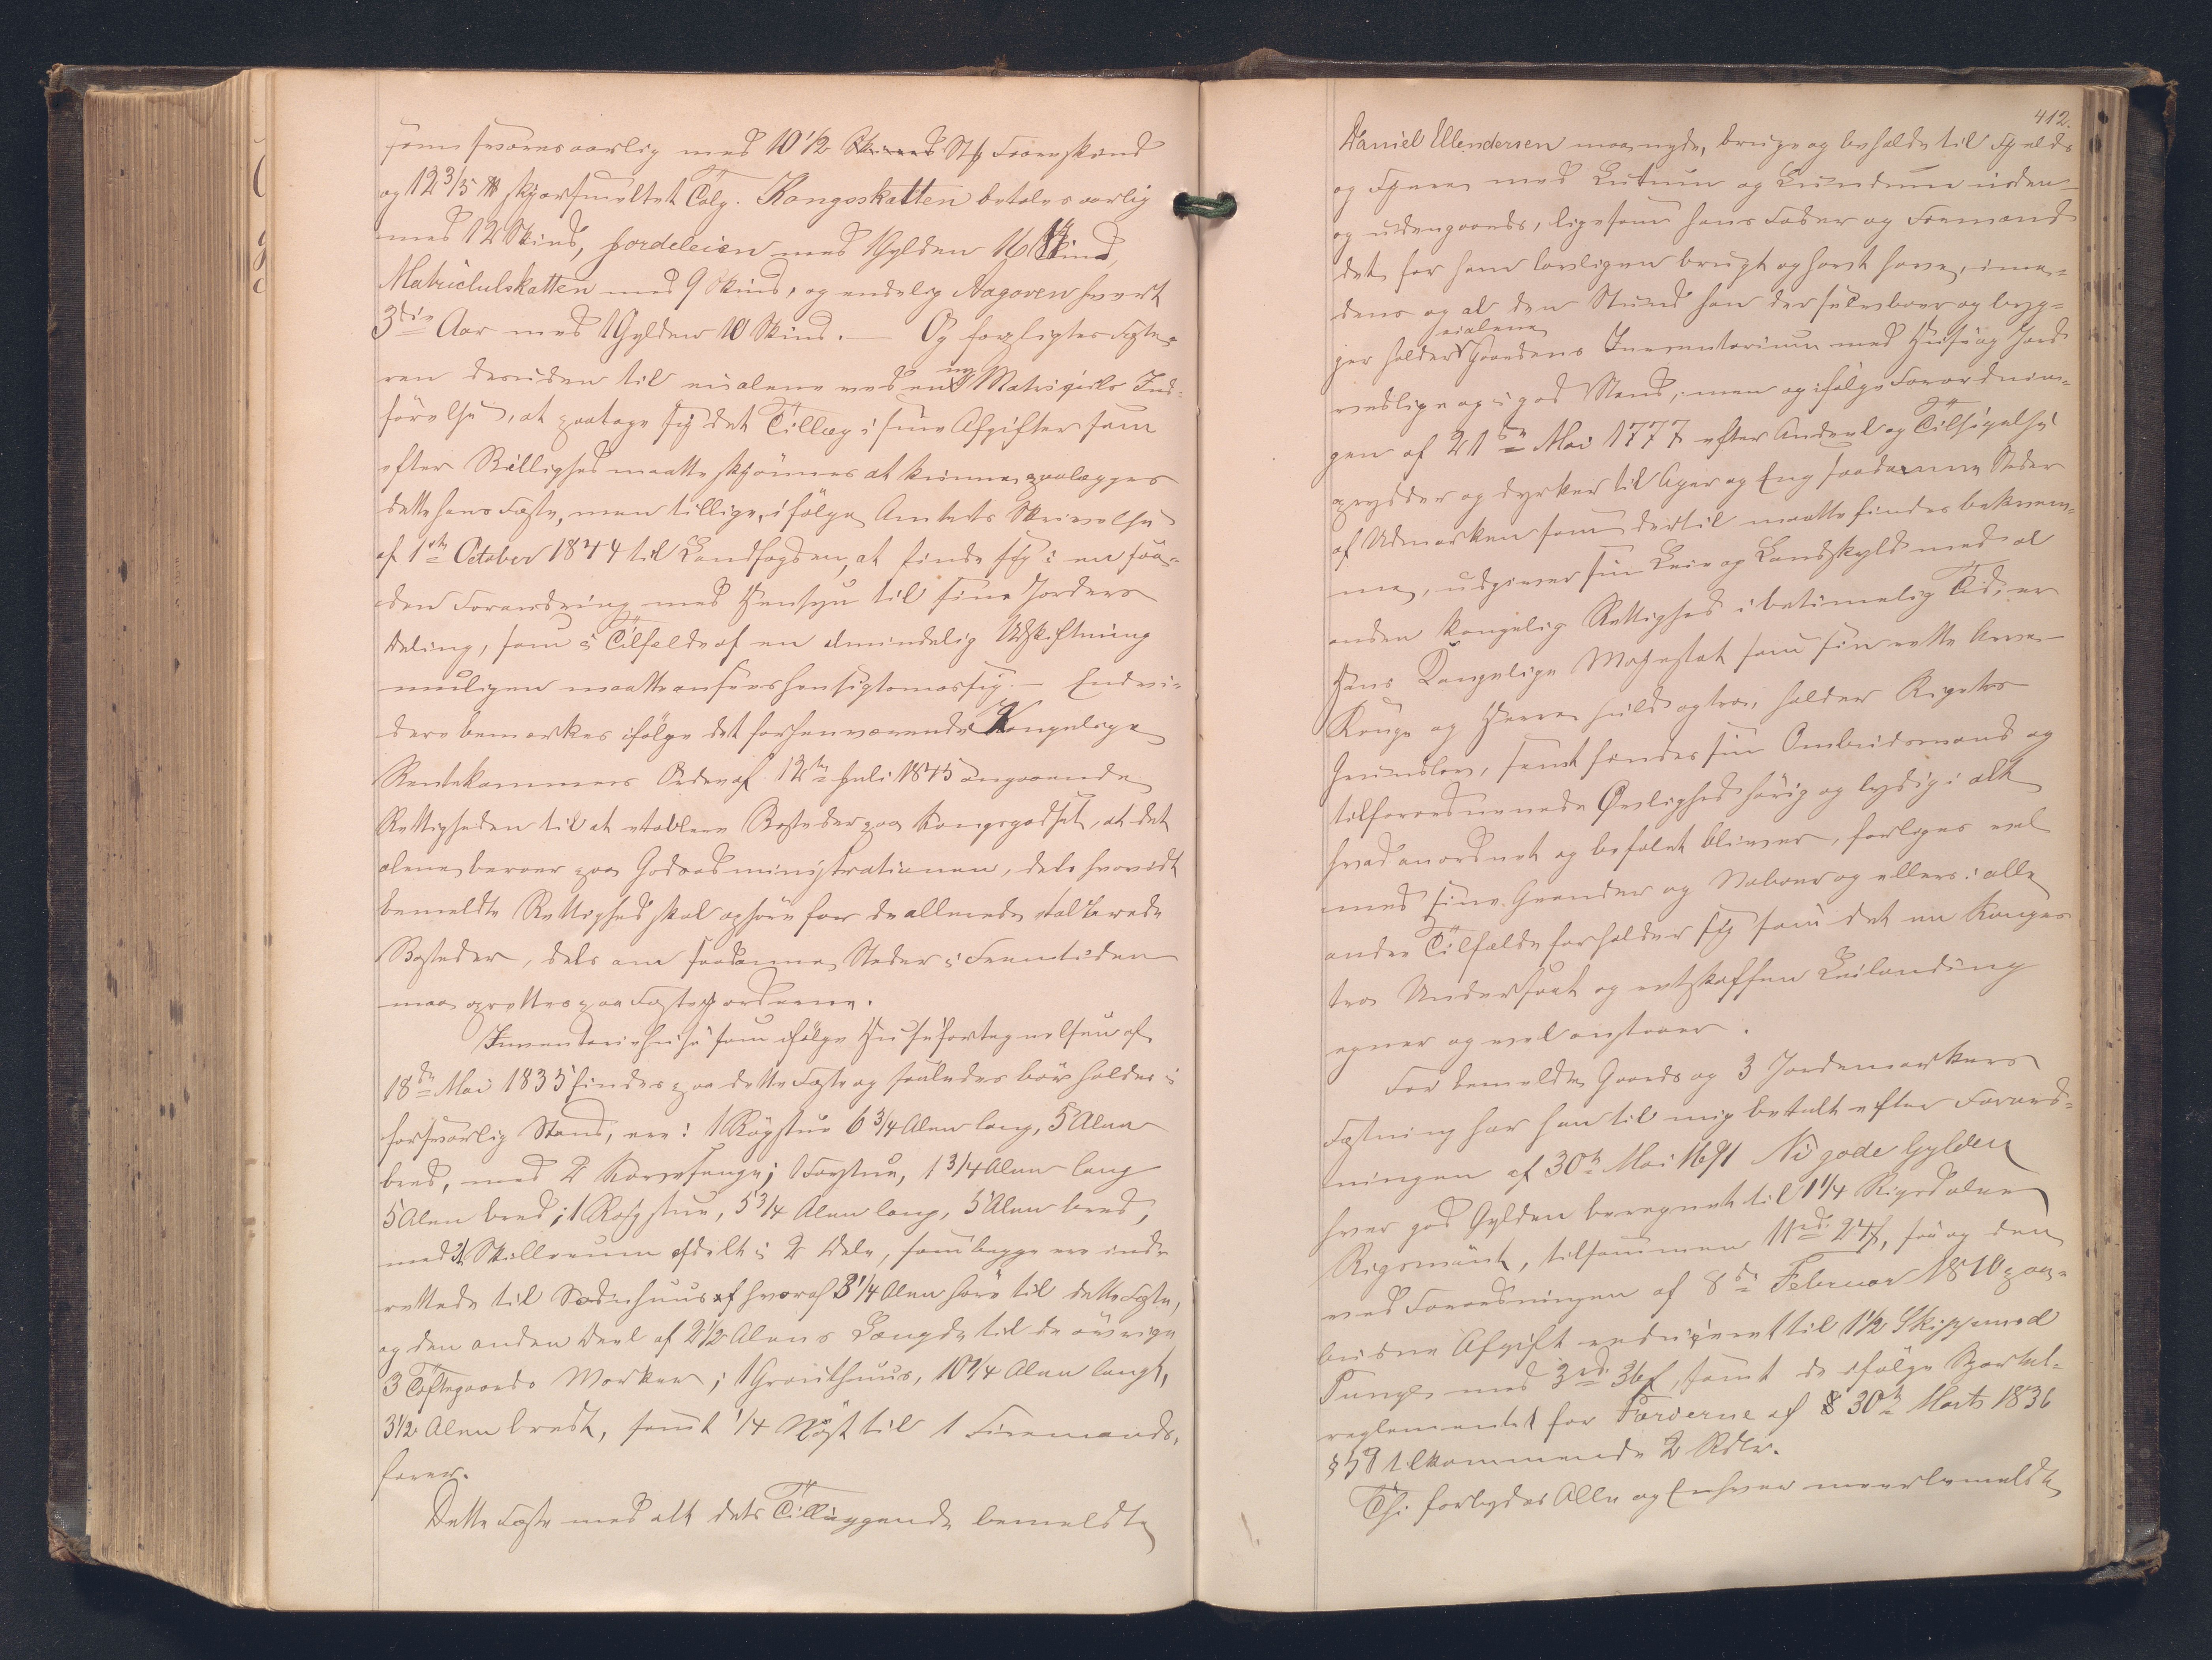 som svares aarlig med 10 1/2 Skind Stk Faareskind
og 12 3/5 ℔ skjørsmeltet Talg. Kongsskatten betales aarlig
med 12 Skind, Hordeleien med 1 Gylden 16 Skind,
Matriculskatten med 9 Skind, og endelig Aagoven hvert
3die Aar med 1 Gylden 10 Skind. — Og forpligtes Fæste-
ren desuden til ei alene ved en ny Matriculs Ind-
førelse, at paatage sig det Tillæg i sine Afgifter som
efter Billighed maatte skjønnes at kunne paalægges
dette hans Fæste, men tillige, ifølge Amtets Skrivelse
af 1ste October 1844 til Landfogden, at finde sig i en saa-
dan Forandring med Hensyn til sine Jorders
Deling, som i Tilfælde af en almindelig Udskiftning
muligen maatte ansees hensigtsmæssig. — Endvi-
dere bemærkes ifølge det forhenværende Kongelige
Rentekammers Ordre af 12te Juli 1845 angaaende
Rettigheden til at etablere Bosteder paa Kongsgodset, at det
alene beroer paa Godsadministrationen, dels hvorvidt
bemeldte Rettighed skal ophøre for de allerede etablerede
Bosteder, dels om saadanne Steder i Fremtiden
maa oprettes paa Fæstejorderne.
Inventariehuse som ifølge Husefortegnelsen af
18de Mai 1835 findes paa dette Fæste og saaledes bør holdes i
forsvarlig Stand, ere: 1 Røgstue 6 3/4 Alen lang, 5 Alen
bred, med 2 Korvesenge; 1 Forstue, 1 3/4 Alen lang
5 Alen bred; 1 Roghstue, 5 3/4 Alen lang, 5 Alen bred,
med 1 Skillerum afdelt i 2 Dele, som begge ere inde
rettede til Sædehuus af hvoraf 3 1/4 Alen høre til dette Fæste,
og den anden Deel af 2 1/2 Alens Længde til de øvrige
3 Toftegaards Marker; 1 Grouthuus, 10 1/4 Alen langt,
3 1/2 Alen bredt, samt 1/4 Nøst til 1 Firemands-
farer.
Dette Fæste med alt dets Tilliggende bemeldte
412.
Daniel Ellendersen maa nyde, bruge og beholde til Fjelds
og Fjære med Lutum og Lundum inden-
og udengaards, ligesom hans Fader og Formænd
det før ham lovligen brugt og havt have, ime-
dens og al den Stund han derselv boer og byg-
ger holder ei alene Gaardens Inventarium med Huse og Jord
vedlige og i god Stand, men og ifølge Forordnin-
gen af 21de Mai 1777 efter Andeel og Tilsigelse
oprydder og dyrker til Ager og Eng saadanne Steder
af Udmarken som dertil maatte findes bekvem-
me, udgiver sin Leie og Landskyld med al
anden kongelig Rettighed i betimelig Tid, er
Hans Kongelige Majestæt som sin rette Arve-
Konge og Herre huld og tro, holder Rigets
Grundlov, samt findes sin Ombudsmand og
tilforordnende Øvrighed hørig og lydig i alt
hvad anordnet og befalet bliver, forliges vel
med sine Grander og Naboer og ellers i alle
andre Tilfælde forholder sig som det en Konges
tro Undersaat og retskaffen Leilænding
egner og vel anstaaer.
For bemeldte Gaards og 3 Jordemarkers
Fæstning har han til mig betalt efter Forord-
ningen af 30te Mai 1691 Ni gode Gylden
hver god Gylden beregnet til 1 1/4 Rigsdaler
Rigsmønt, tilsammen 11rd. 24ß, saa og den
ved Forordningen af 8de Februar 1810 paa-
budne Afgift reduceret til 1 1/2 Skippund
Tunge med 3rd. 36ß, samt de ifølge Sportel-
reglementet for Færøerne af 30te Marts 1836
§ 58 tilkommende 2 Rdlr.
Thi forbydes Alle og Enhver meerbemeldte